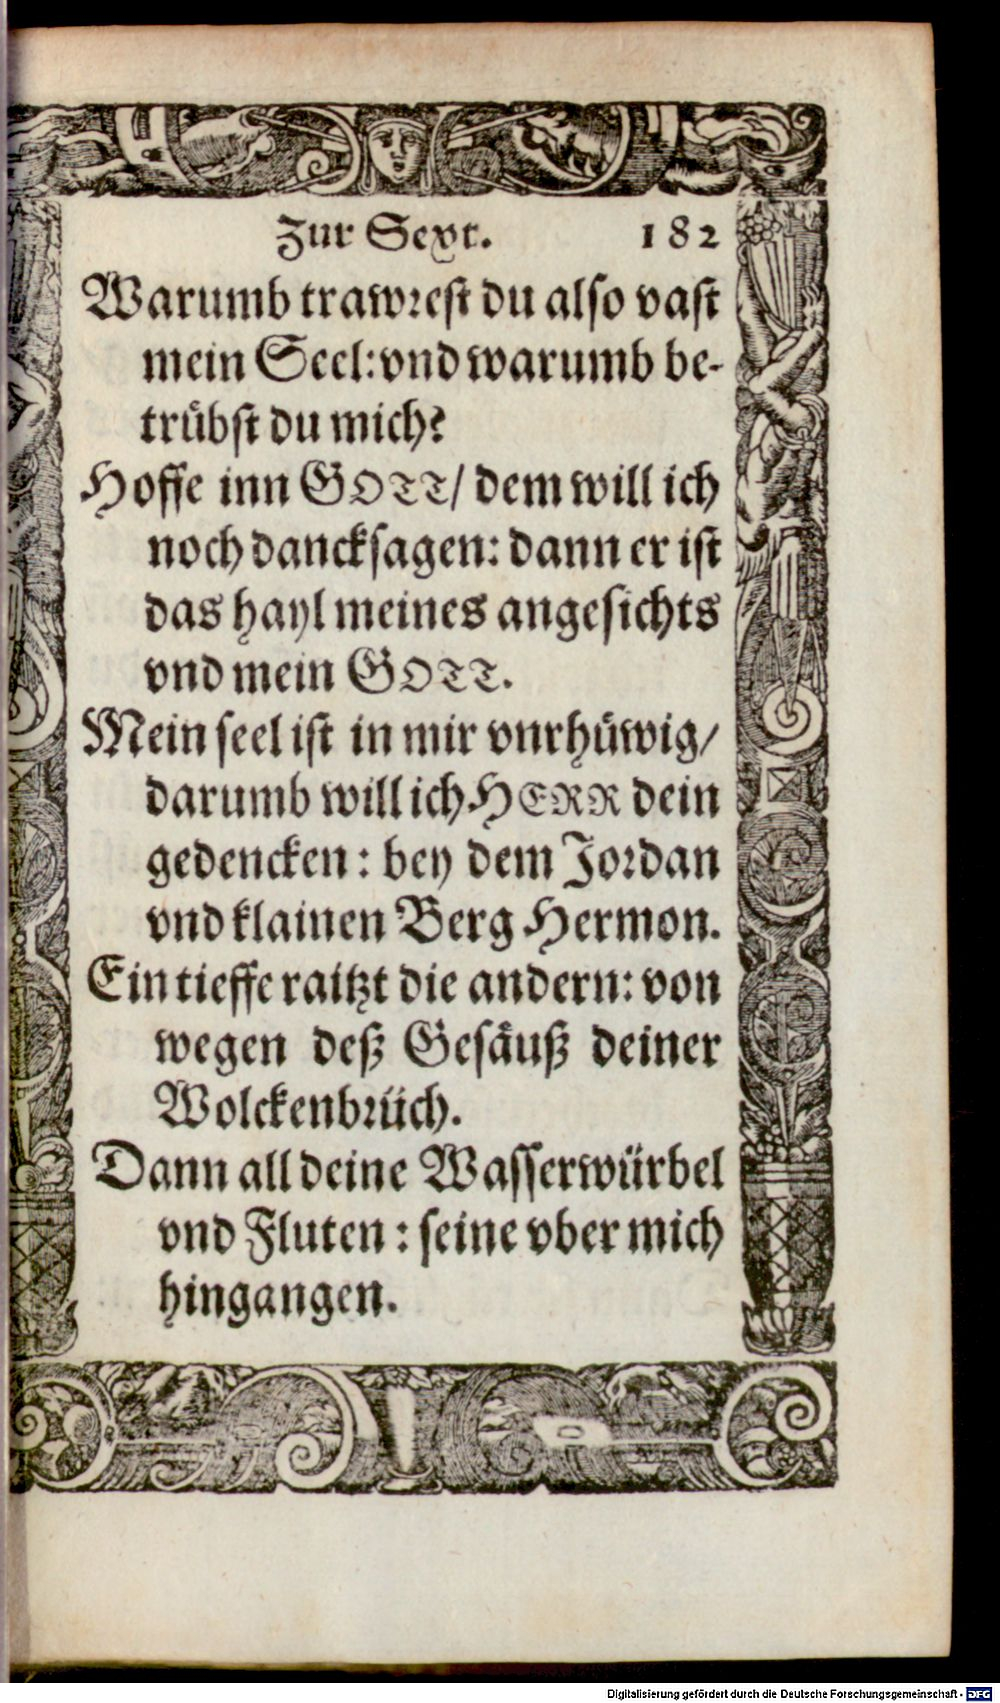 Zur Sext. 182
Warumb trawrest du also vast
mein Seel: vnd warumb be-
trübst du mich?
Hoffe inn GOTT/ dem will ich
noch dancksagen: dann er ist
das hayl meines angesichts
vnd mein GOTT.
Mein seel ist in mir vnrhüwig/
darumb will ich HERR dein
gedencken: bey dem Jordan
vnd klainen Berg Hermon.
Ein tieffe raitzt die andern: von
wegen deß Gesäuß deiner
Wolckenbrüch.
Dann all deine Wasserwürbel
vnd Fluten: seine vber mich
hingangen.
Digitalisierung gefördert durch die Deutsche Forschungsgemeinschaft - DFG